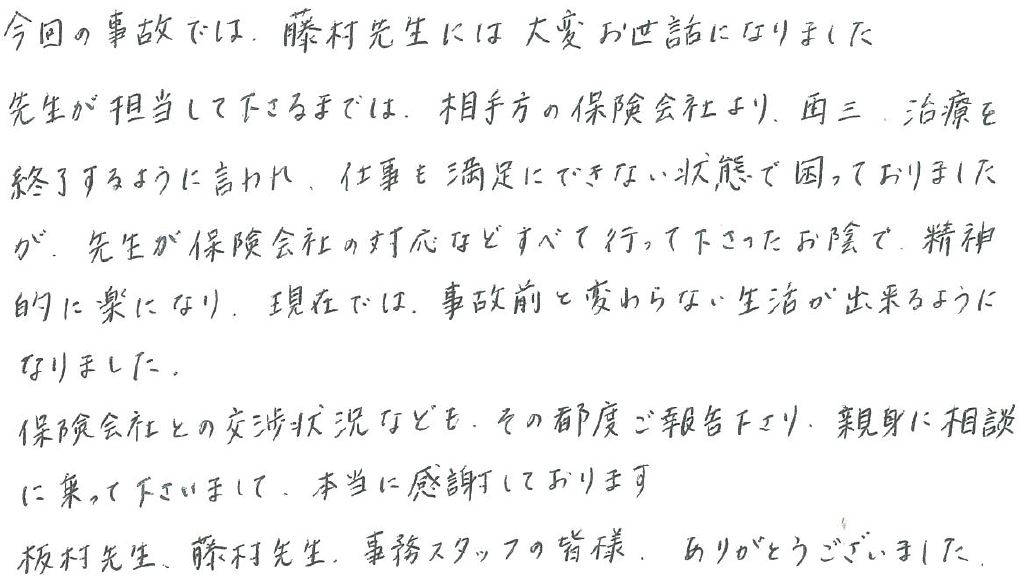 今回の事故では、藤村先生には大変お世話になりました
先生が担当して下さるまでは、相手方の保険会社より、再三、治療を
終了するように言われ、仕事も満足にできない状態で困っておりました
が、先生が保険会社の対応などすべて行って下さったお陰で、精神
的に楽になり、現在では、事故前と変わらない生活が出来るように
なりました。
保険会社との交渉状況なども、その都度ご報告下さり、親身に相談
に乗って下さいまして、本当に感謝しております
板村先生、藤村先生、事務スタッフの皆様、ありがとうございました。